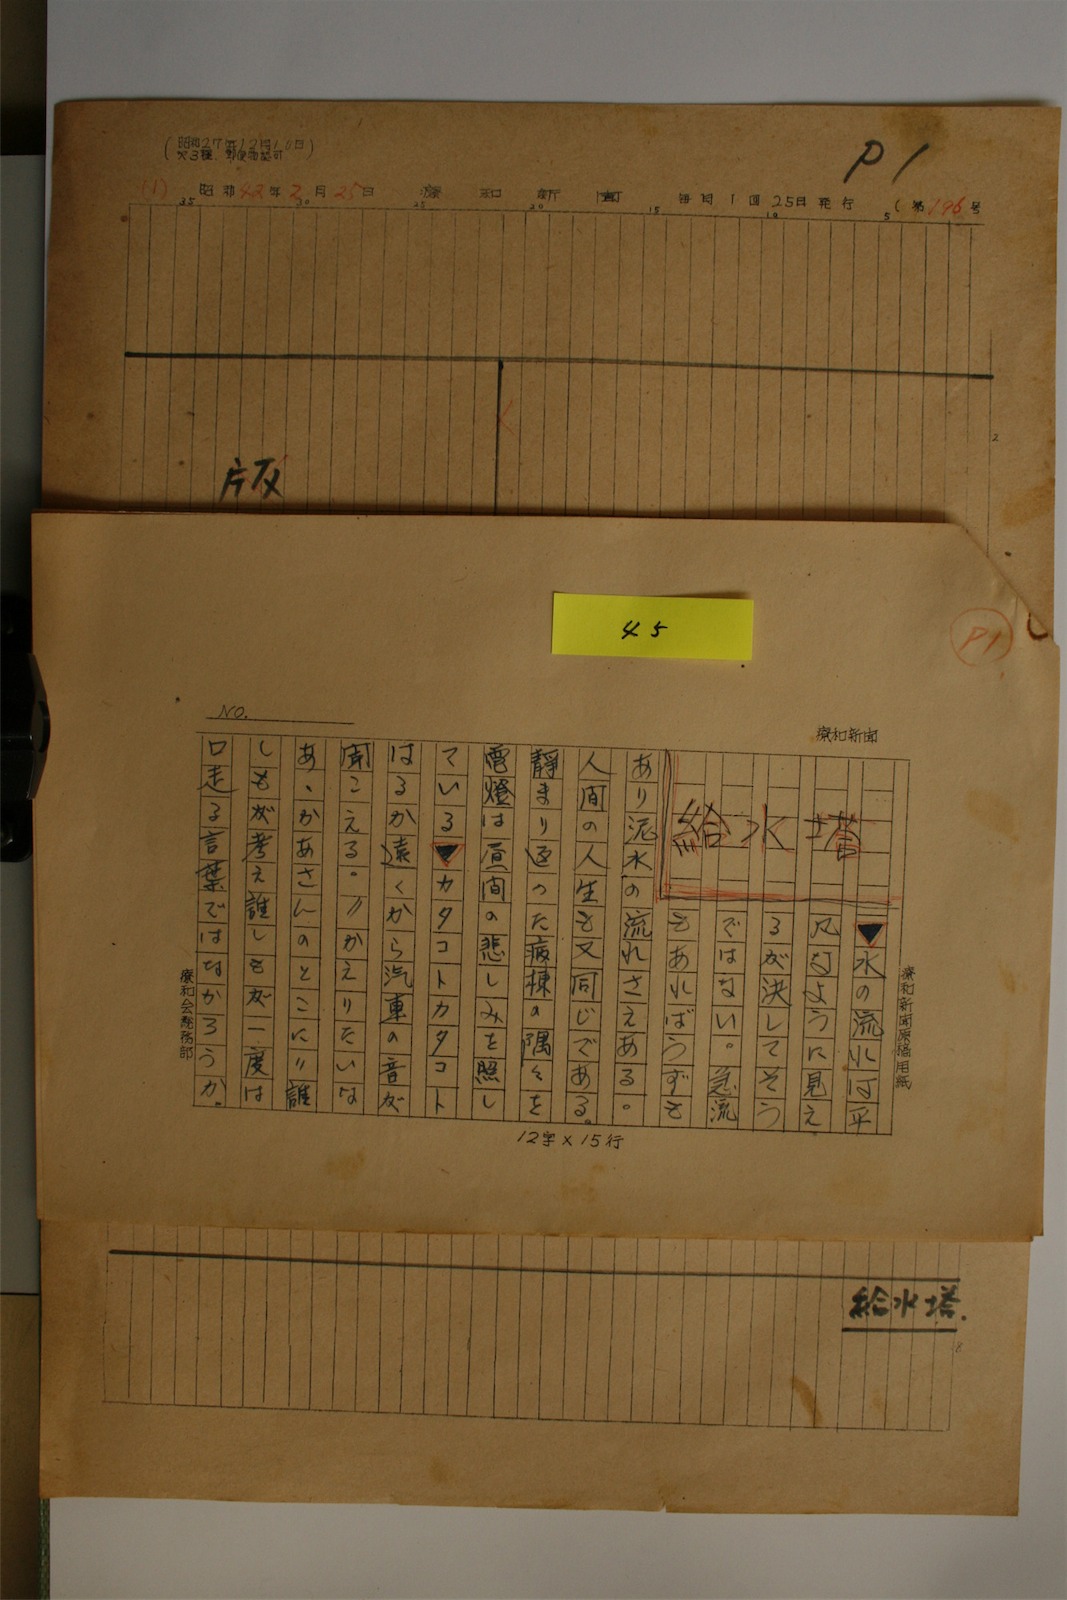 (昭和27年12月10日
第3種、郵便物認可)
P1
(1) 昭和42年2月25日 療和新聞 毎月1回25日発行 (第196号
35 30 25 20 15 10 5
2
片仮
45
P1
NO.
療和新聞
給水塔
▼水の流れは平
凡なように見え
るが決してそう
ではない。急流
もあればうずも
あり泥水の流れさえある。
人間の人生も又同じである。
静まり返った病棟の隅々を
電燈は昼間の悲しみを照し
ている▼カタコトカタコト
はるか遠くから汽車の音が
聞こえる。〃かえりたいな
あ、かあさんのとこに〃誰
しもが考え誰しもが一度は
口走る言葉ではなかろうか。
療和新聞原稿用紙
療和会総務部
12字×15行
給水塔.
8